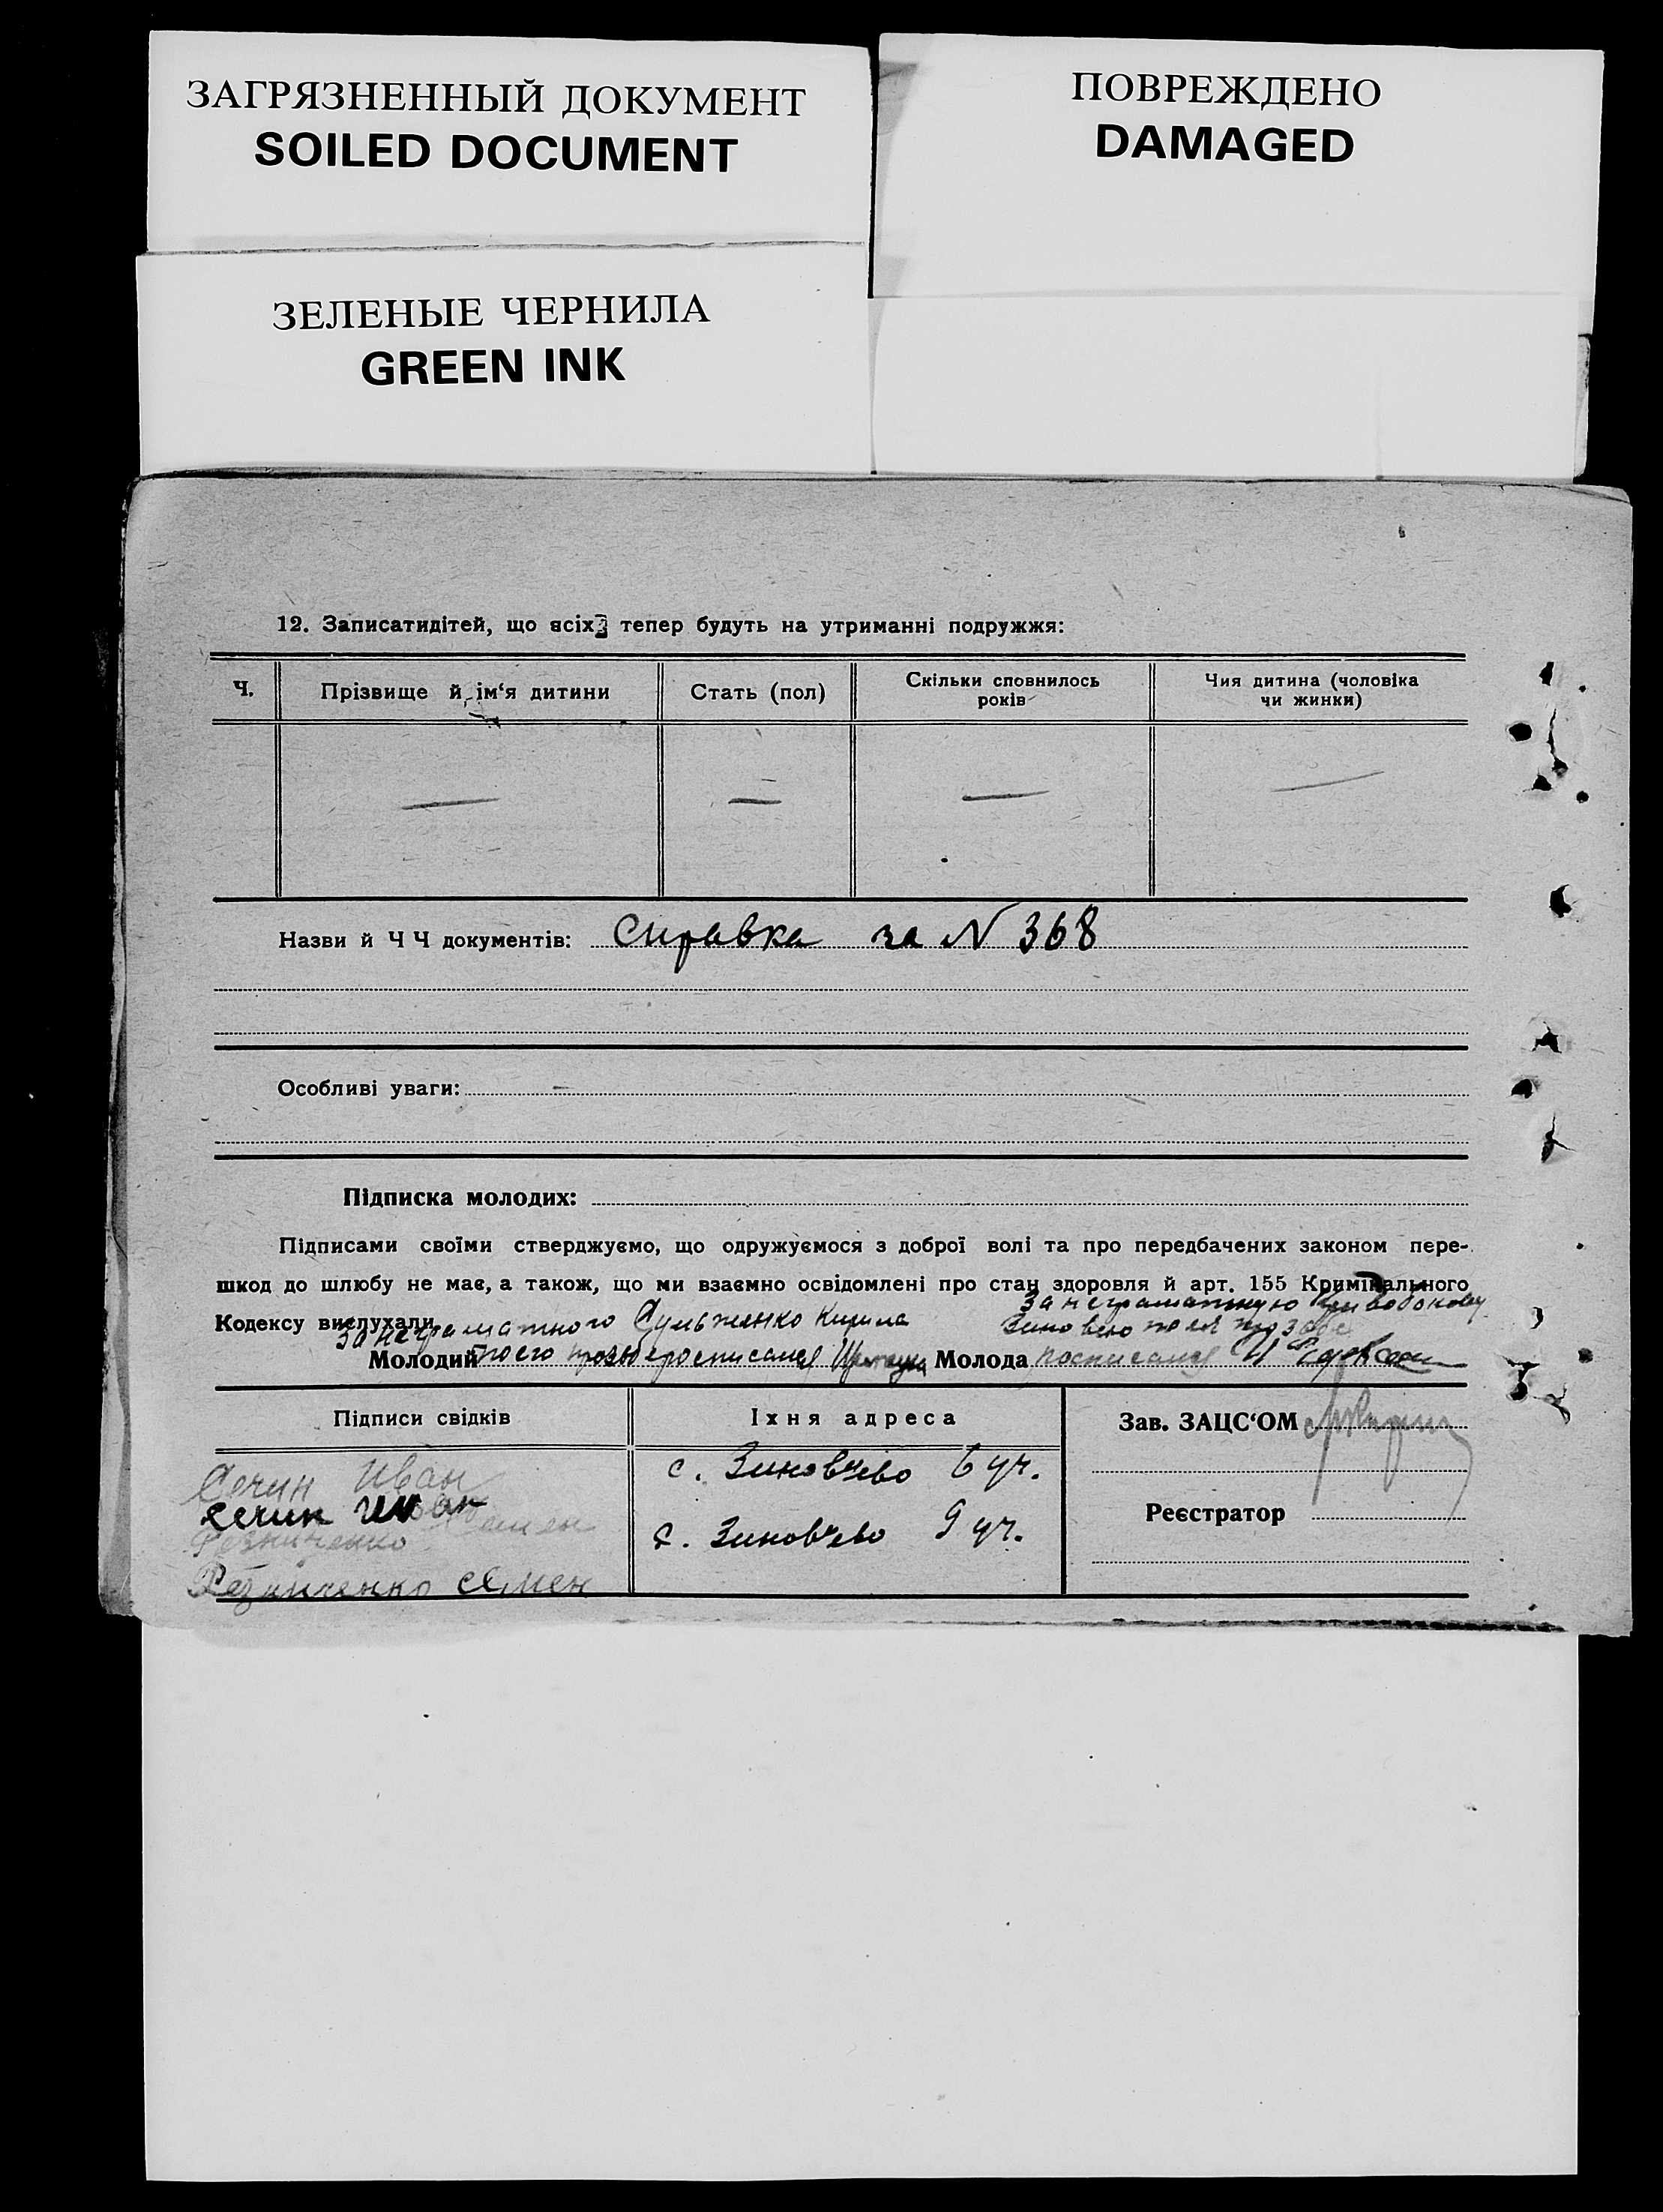 ЗАГРЯЗНЕННЫЙ ДОКУМЕНТ
SOILED DOCUMENT
ПОВРЕЖДЕНО
DAMAGED
ЗЕЛЕНЫЕ ЧЕРНИЛА
GREEN INK
12. Записатидітей, що всіх тепер будуть на утриманні подружжя:
Ч.
Прізвище й ім‘я дитини
Стать (пол)
Скільки сповнилось
років
Чия дитина (чоловіка
чи жинки)
— — — —
Назви й Ч Ч документів: Справка за N 368
Особливі уваги: —
Підписка молодих:
Підписами своїми стверджуємо, що одружуємося з доброї волі та про передбачених законом пере-
шкод до шлюбу не має, а також, що ми взаємно освідомлені про стан здоровля й арт. 155 Кримінального
Кодексу вислухали
За неграматного Сульженко Кирила
За неграматную
Молодий по его прозьбе росписался
Молода росписался
Підписи свідків
Їхня адреса
Зав. ЗАЦС‘ОМ
Сечин Иван
с. Зиновчево 6 уч.
Сечин Иван
Резниченко Семен
с. Зиновчево 9 уч.
Реєстратор
Резниченко Семен